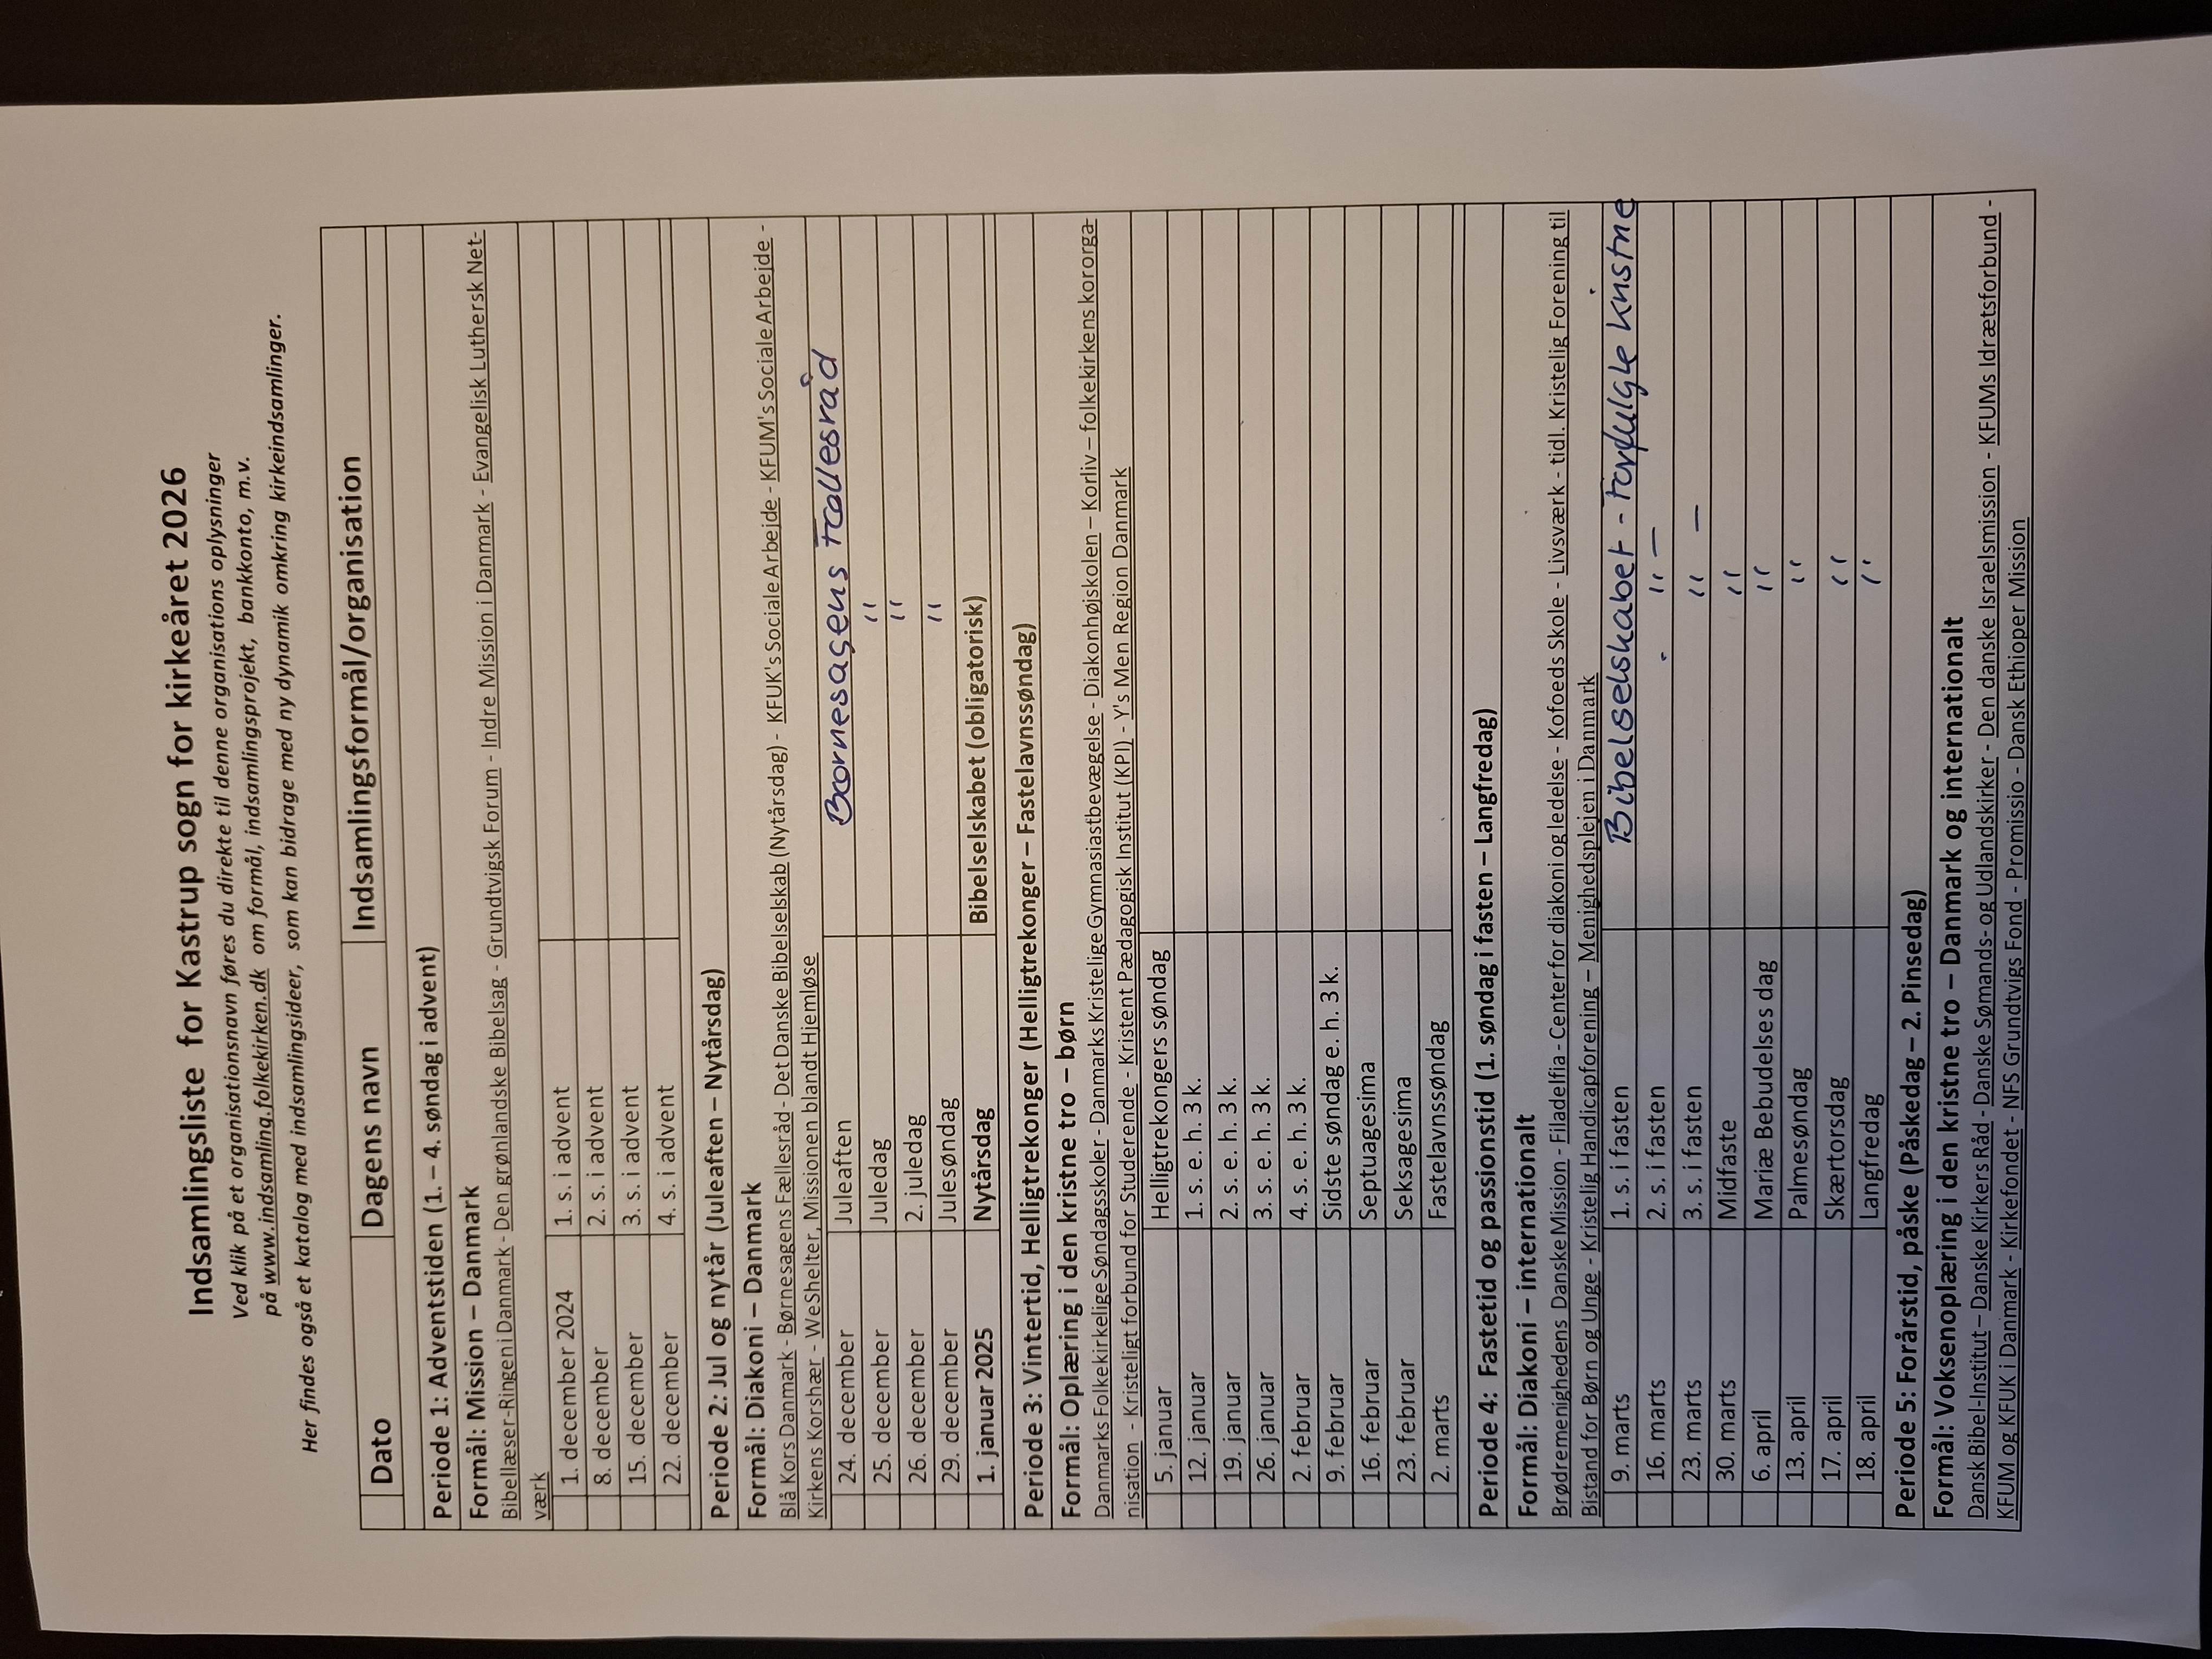 Indsamlingsliste for Kastrup sogn for kirkeåret 2026
Ved klik på et organisationsnavn føres du direkte til denne organisations oplysninger
på www.indsamling.folkekirken.dk om formål, indsamlingsprojekt, bankkonto, m.v.
Her findes også et katalog med indsamlingsideer, som kan bidrage med ny dynamik omkring kirkeindsamlinger.
Dato Dagens navn Indsamlingsformål/organisation
Periode 1: Adventstiden (1. – 4. søndag i advent)
Formål: Mission – Danmark
Bibellæser-Ringen i Danmark - Den grønlandske Bibelsag - Grundtvigsk Forum - Indre Mission i Danmark - Evangelisk Luthersk Net-
værk
1. december 2024 1. s. i advent
8. december 2. s. i advent
15. december 3. s. i advent
22. december 4. s. i advent
Periode 2: Jul og nytår (Juleaften – Nytårsdag)
Formål: Diakoni – Danmark
Blå Kors Danmark - Børnesagens Fællesråd - Det Danske Bibelselskab (Nytårsdag) - KFUK's Sociale Arbejde - KFUM's Sociale Arbejde -
Kirkens Korshær - WeShelter, Missionen blandt Hjemløse
24. december Juleaften Børnesagens Fællesråd
25. december Juledag "
26. december 2. juledag "
29. december Julesøndag "
1. januar 2025 Nytårsdag Bibelselskabet (obligatorisk)
Periode 3: Vintertid, Helligtrekonger (Helligtrekonger – Fastelavnssøndag)
Formål: Oplæring i den kristne tro – børn
Danmarks Folkekirkelige Søndagsskoler - Danmarks Kristelige Gymnasiastbevægelse - Diakonhøjskolen – Korliv – folkekirkens kororga-
nisation - Kristeligt forbund for Studerende - Kristent Pædagogisk Institut (KPI) - Y's Men Region Danmark
5. januar Helligtrekongers søndag
12. januar 1. s. e. h. 3 k.
19. januar 2. s. e. h. 3 k.
26. januar 3. s. e. h. 3 k.
2. februar 4. s. e. h. 3 k.
9. februar Sidste søndag e. h. 3 k.
16. februar Septuagesima
23. februar Seksagesima
2. marts Fastelavnssøndag
Periode 4: Fastetid og passionstid (1. søndag i fasten – Langfredag)
Formål: Diakoni – internationalt
Brødremenighedens Danske Mission - Filadelfia - Center for diakoni og ledelse - Kofoeds Skole - Livsværk - tidl. Kristelig Forening til
Bistand for Børn og Unge - Kristelig Handicapforening – Menighedsplejen i Danmark
9. marts 1. s. i fasten Bibelselskabet - Forfulgte kristne
16. marts 2. s. i fasten " —
23. marts 3. s. i fasten " —
30. marts Midfaste "
6. april Mariæ Bebudelses dag "
13. april Palmesøndag "
17. april Skærtorsdag "
18. april Langfredag "
Periode 5: Forårstid, påske (Påskedag – 2. Pinsedag)
Formål: Voksenoplæring i den kristne tro – Danmark og internationalt
Dansk Bibel-Institut – Danske Kirkers Råd - Danske Sømands- og Udlandskirker - Den danske Israelsmission - KFUMs Idrætsforbund -
KFUM og KFUK i Danmark - Kirkefondet - NFS Grundtvigs Fond - Promissio - Dansk Ethioper Mission